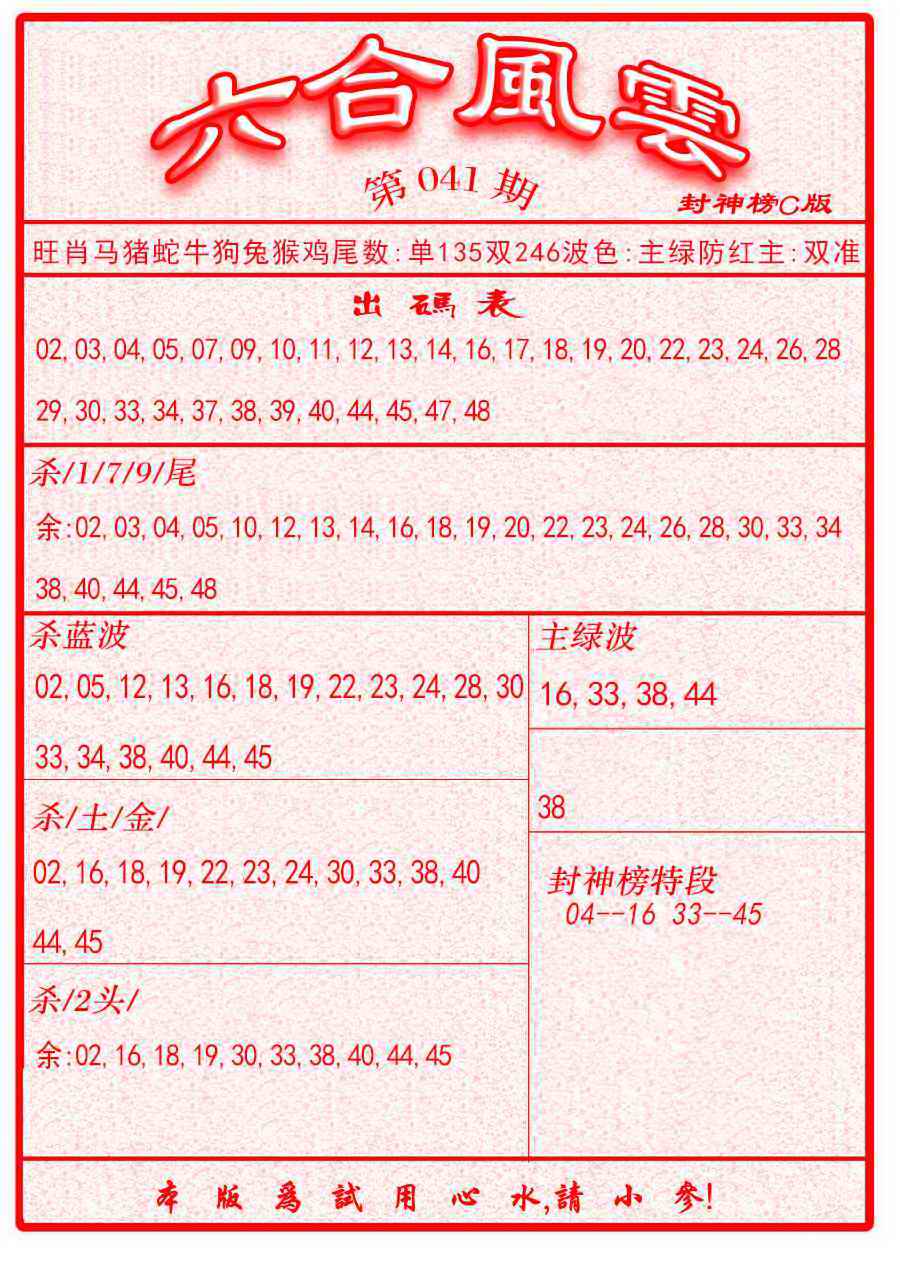 六合風雲
第041期
封神榜C版
旺肖马猪蛇牛狗兔猴鸡尾数:单135双246波色:主绿防红主:双准
出碼表
02,03,04,05,07,09,10,11,12,13,14,16,17,18,19,20,22,23,24,26,28
29,30,33,34,37,38,39,40,44,45,47,48
杀/1/7/9/尾
余:02,03,04,05,10,12,13,14,16,18,19,20,22,23,24,26,28,30,33,34
38,40,44,45,48
杀蓝波
02,05,12,13,16,18,19,22,23,24,28,30
33,34,38,40,44,45
杀/土/金/
02,16,18,19,22,23,24,30,33,38,40
44,45
杀/2头/
余:02,16,18,19,30,33,38,40,44,45
主绿波
16,33,38,44
38
封神榜特段
04--16 33--45
本版爲試用心水,請小參!